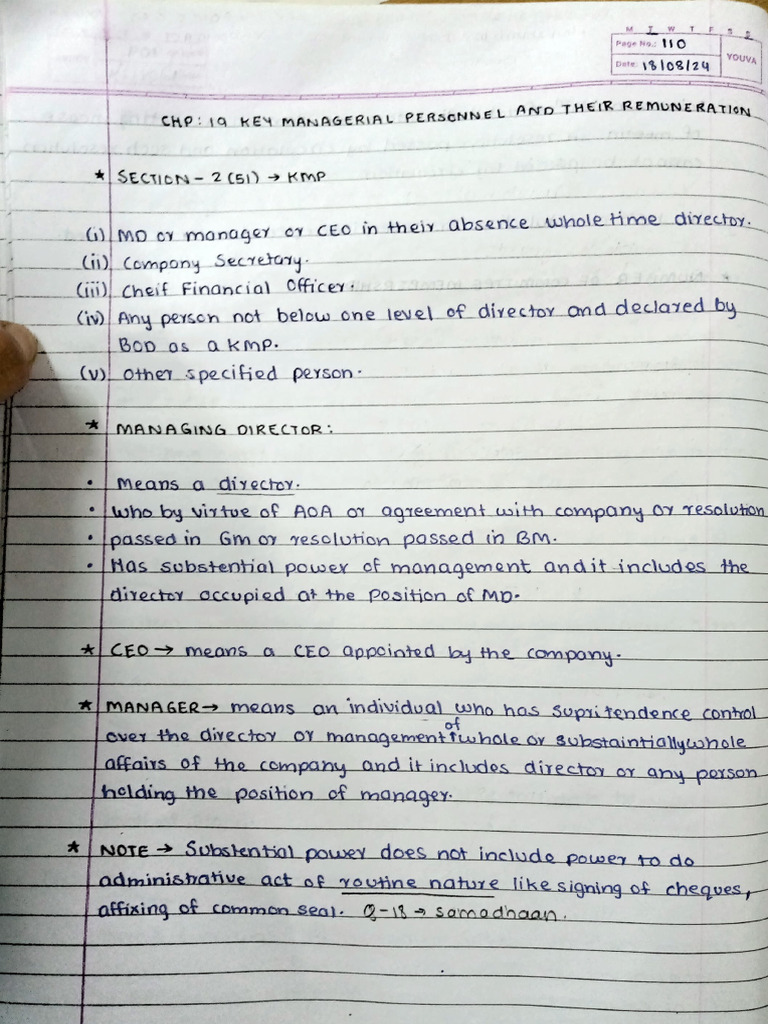 M T W T F S S
Page No.: 110
Date: 18/08/24
YOUVA
CHP: 19 KEY MANAGERIAL PERSONNEL AND THEIR REMUNERATION
* SECTION - 2 (51) → KMP
(i) MD or manager or CEO in their absence whole time director.
(ii) Company Secretary.
(iii) Cheif Financial Officer.
(iv) Any person not below one level of director and declared by
BOD as a KMP.
(v) Other specified person.
* MANAGING DIRECTOR:
• Means a director.
• Who by virtue of AOA or agreement with company or resolution
• passed in GM or resolution passed in BM.
• Has substential power of management and it includes the
director occupied at the Position of MD.
* CEO → means a CEO appointed by the company.
* MANAGER → means an individual who has supritendence control
over the director or management of whole or substaintially whole
affairs of the company and it includes director or any person
holding the position of manager.
* NOTE → Substential power does not include power to do
administrative act of routine nature like signing of cheques,
affixing of common seal. Q-18 → samadhaan.